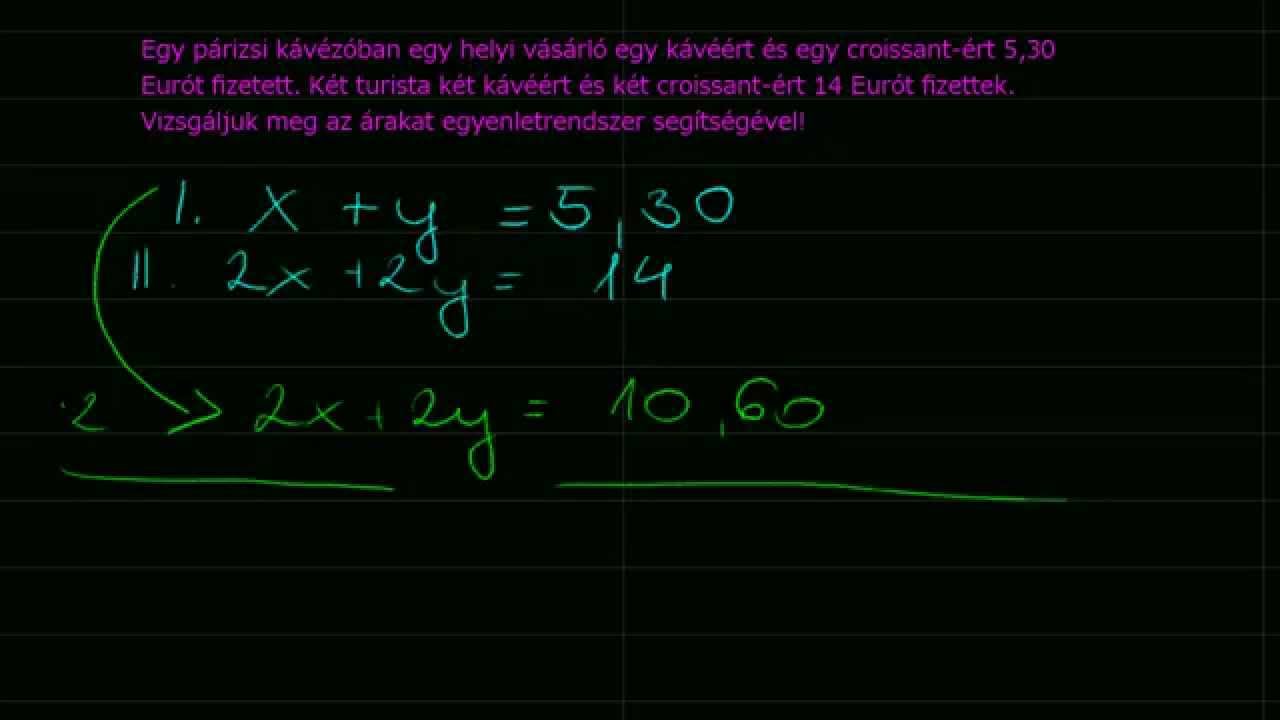 Egy párizsi kávézóban egy helyi vásárló egy kávéért és egy croissant-ért 5,30
Eurót fizetett. Két turista két kávéért és két croissant-ért 14 Eurót fizettek.
Vizsgáljuk meg az árakat egyenletrendszer segítségével!
I. x + y = 5,30
II. 2x + 2y = 14
·2 > 2x + 2y = 10,60